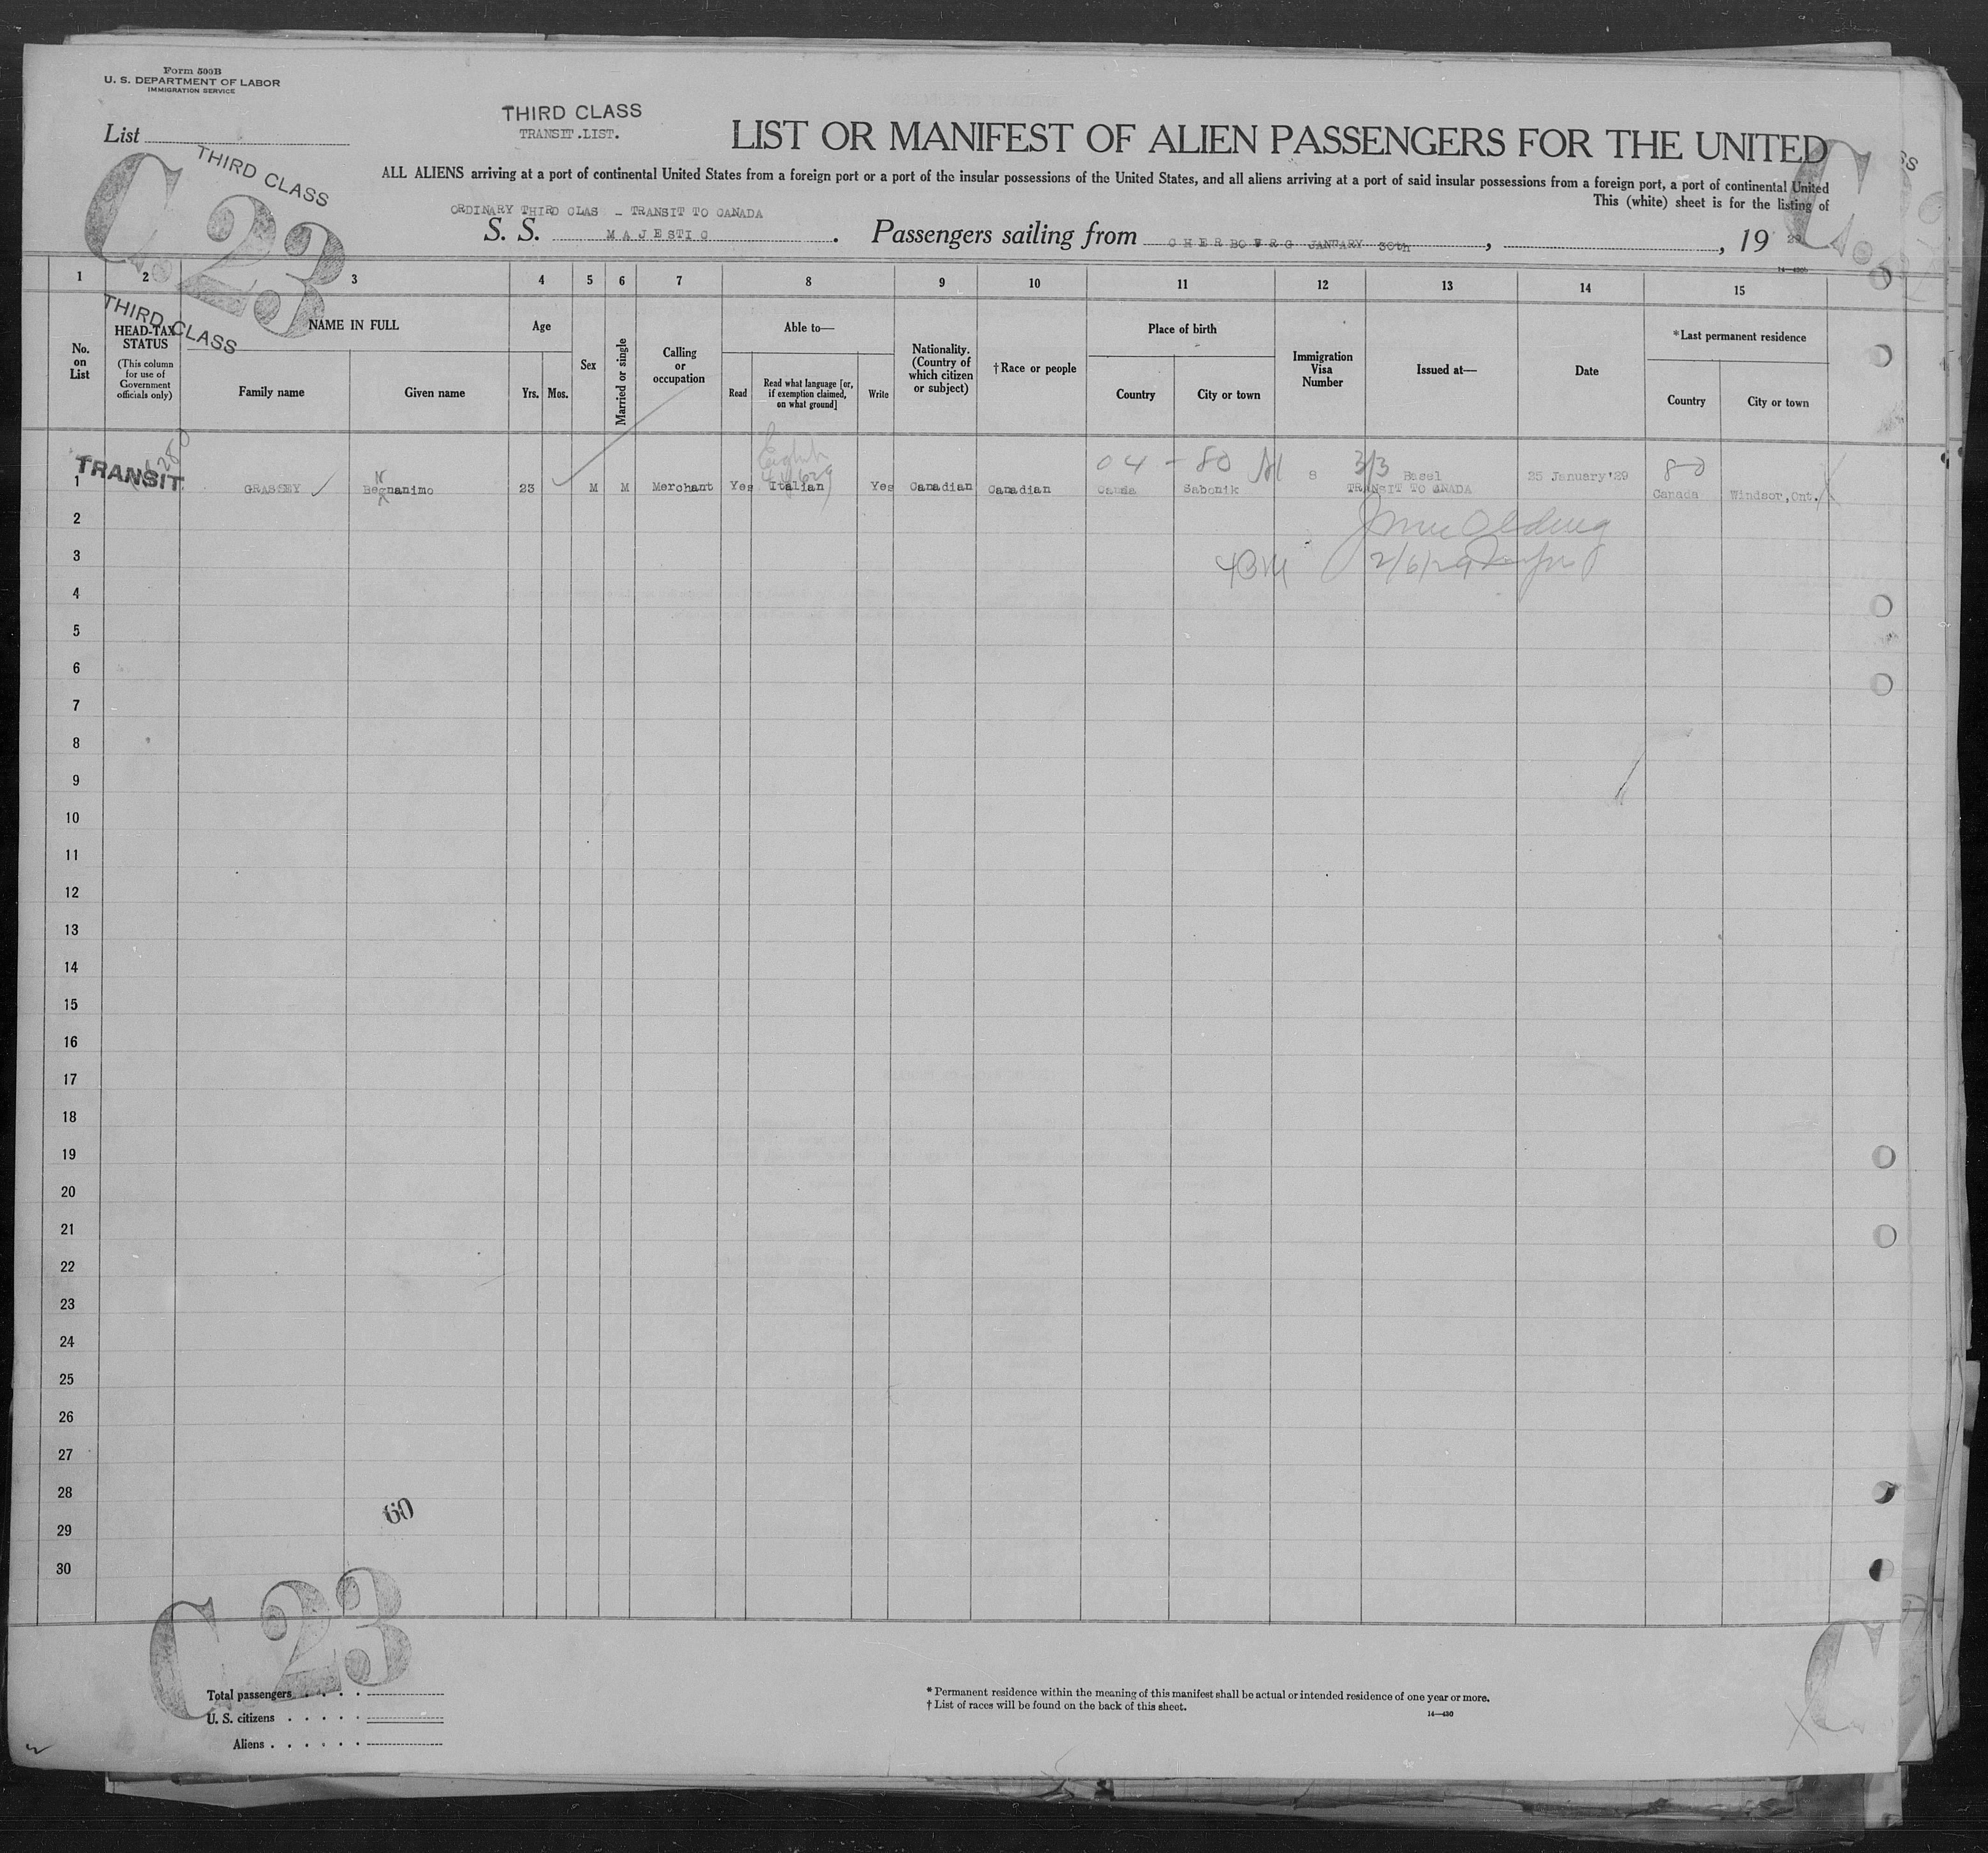 Form 500B
U. S. DEPARTMENT OF LABOR
IMMIGRATION SERVICE
List
THIRD CLASS
TRANSIT.LIST.
LIST OR MANIFEST OF ALIEN PASSENGERS FOR THE UNITED
THIRD CLASS
C 23
ALL ALIENS arriving at a port of continental United States from a foreign port or a port of the insular possessions of the United States, and all aliens arriving at a port of said insular possessions from a foreign port, a port of continental United
This (white) sheet is for the listing of
ORDINARY THIRD CLAS - TRANSIT TO CANADA
S. S. MAJESTIC. Passengers sailing from CHERBOURG JANUARY 30th, , 19 29
14-430b
1 2 3 4 5 6 7 8 9 10 11 12 13 14 15
THIRD CLASS
No. on List
HEAD-TAX STATUS
(This column for use of Government officials only)
NAME IN FULL
Family name
Given name
Age
Yrs.
Mos.
Sex
Married or single
Calling or occupation
Able to—
Read
Read what language [or, if exemption claimed, on what ground]
Write
Nationality. (Country of which citizen or subject)
†Race or people
Place of birth
Country
City or town
Immigration Visa Number
Issued at—
Date
*Last permanent residence
Country
City or town
04 - 80
3/3
80
TRANSIT
1 GRASSEY Begnanimo 23 M M Merchant Yes Italian Yes Canadian Canadian Canda Sabonik 8 Basel 25 January'29 Canada Windsor,Ont.
TRANSIT TO CANADA
2
3
2/6/29
4
5
6
7
8
9
10
11
12
13
14
15
16
17
18
19
20
21
22
23
24
25
26
27
28
29
30
60
C 23
C
Total passengers
U. S. citizens
Aliens
* Permanent residence within the meaning of this manifest shall be actual or intended residence of one year or more.
† List of races will be found on the back of this sheet.
14-430